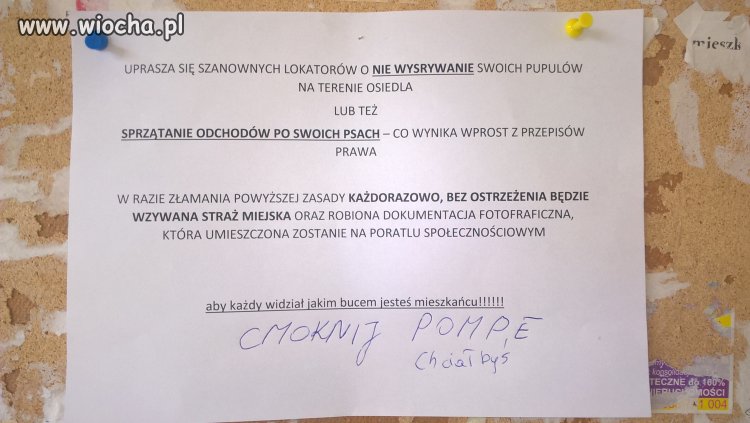 www.wiocha.pl
mieszk
UPRASZA SIĘ SZANOWNYCH LOKATORÓW O NIE WYSRYWANIE SWOICH PUPULÓW
NA TERENIE OSIEDLA
LUB TEŻ
SPRZĄTANIE ODCHODÓW PO SWOICH PSACH – CO WYNIKA WPROST Z PRZEPISÓW
PRAWA
W RAZIE ZŁAMANIA POWYŻSZEJ ZASADY KAŻDORAZOWO, BEZ OSTRZEŻENIA BĘDZIE
WZYWANA STRAŻ MIEJSKA ORAZ ROBIONA DOKUMENTACJA FOTOFRAFICZNA,
KTÓRA UMIESZCZONA ZOSTANIE NA PORATLU SPOŁECZNOŚCIOWYM
aby każdy widział jakim bucem jesteś mieszkańcu!!!!!!
CMOKNIJ POMPĘ
Chciałbyś
TECZNE do 100%
1 004